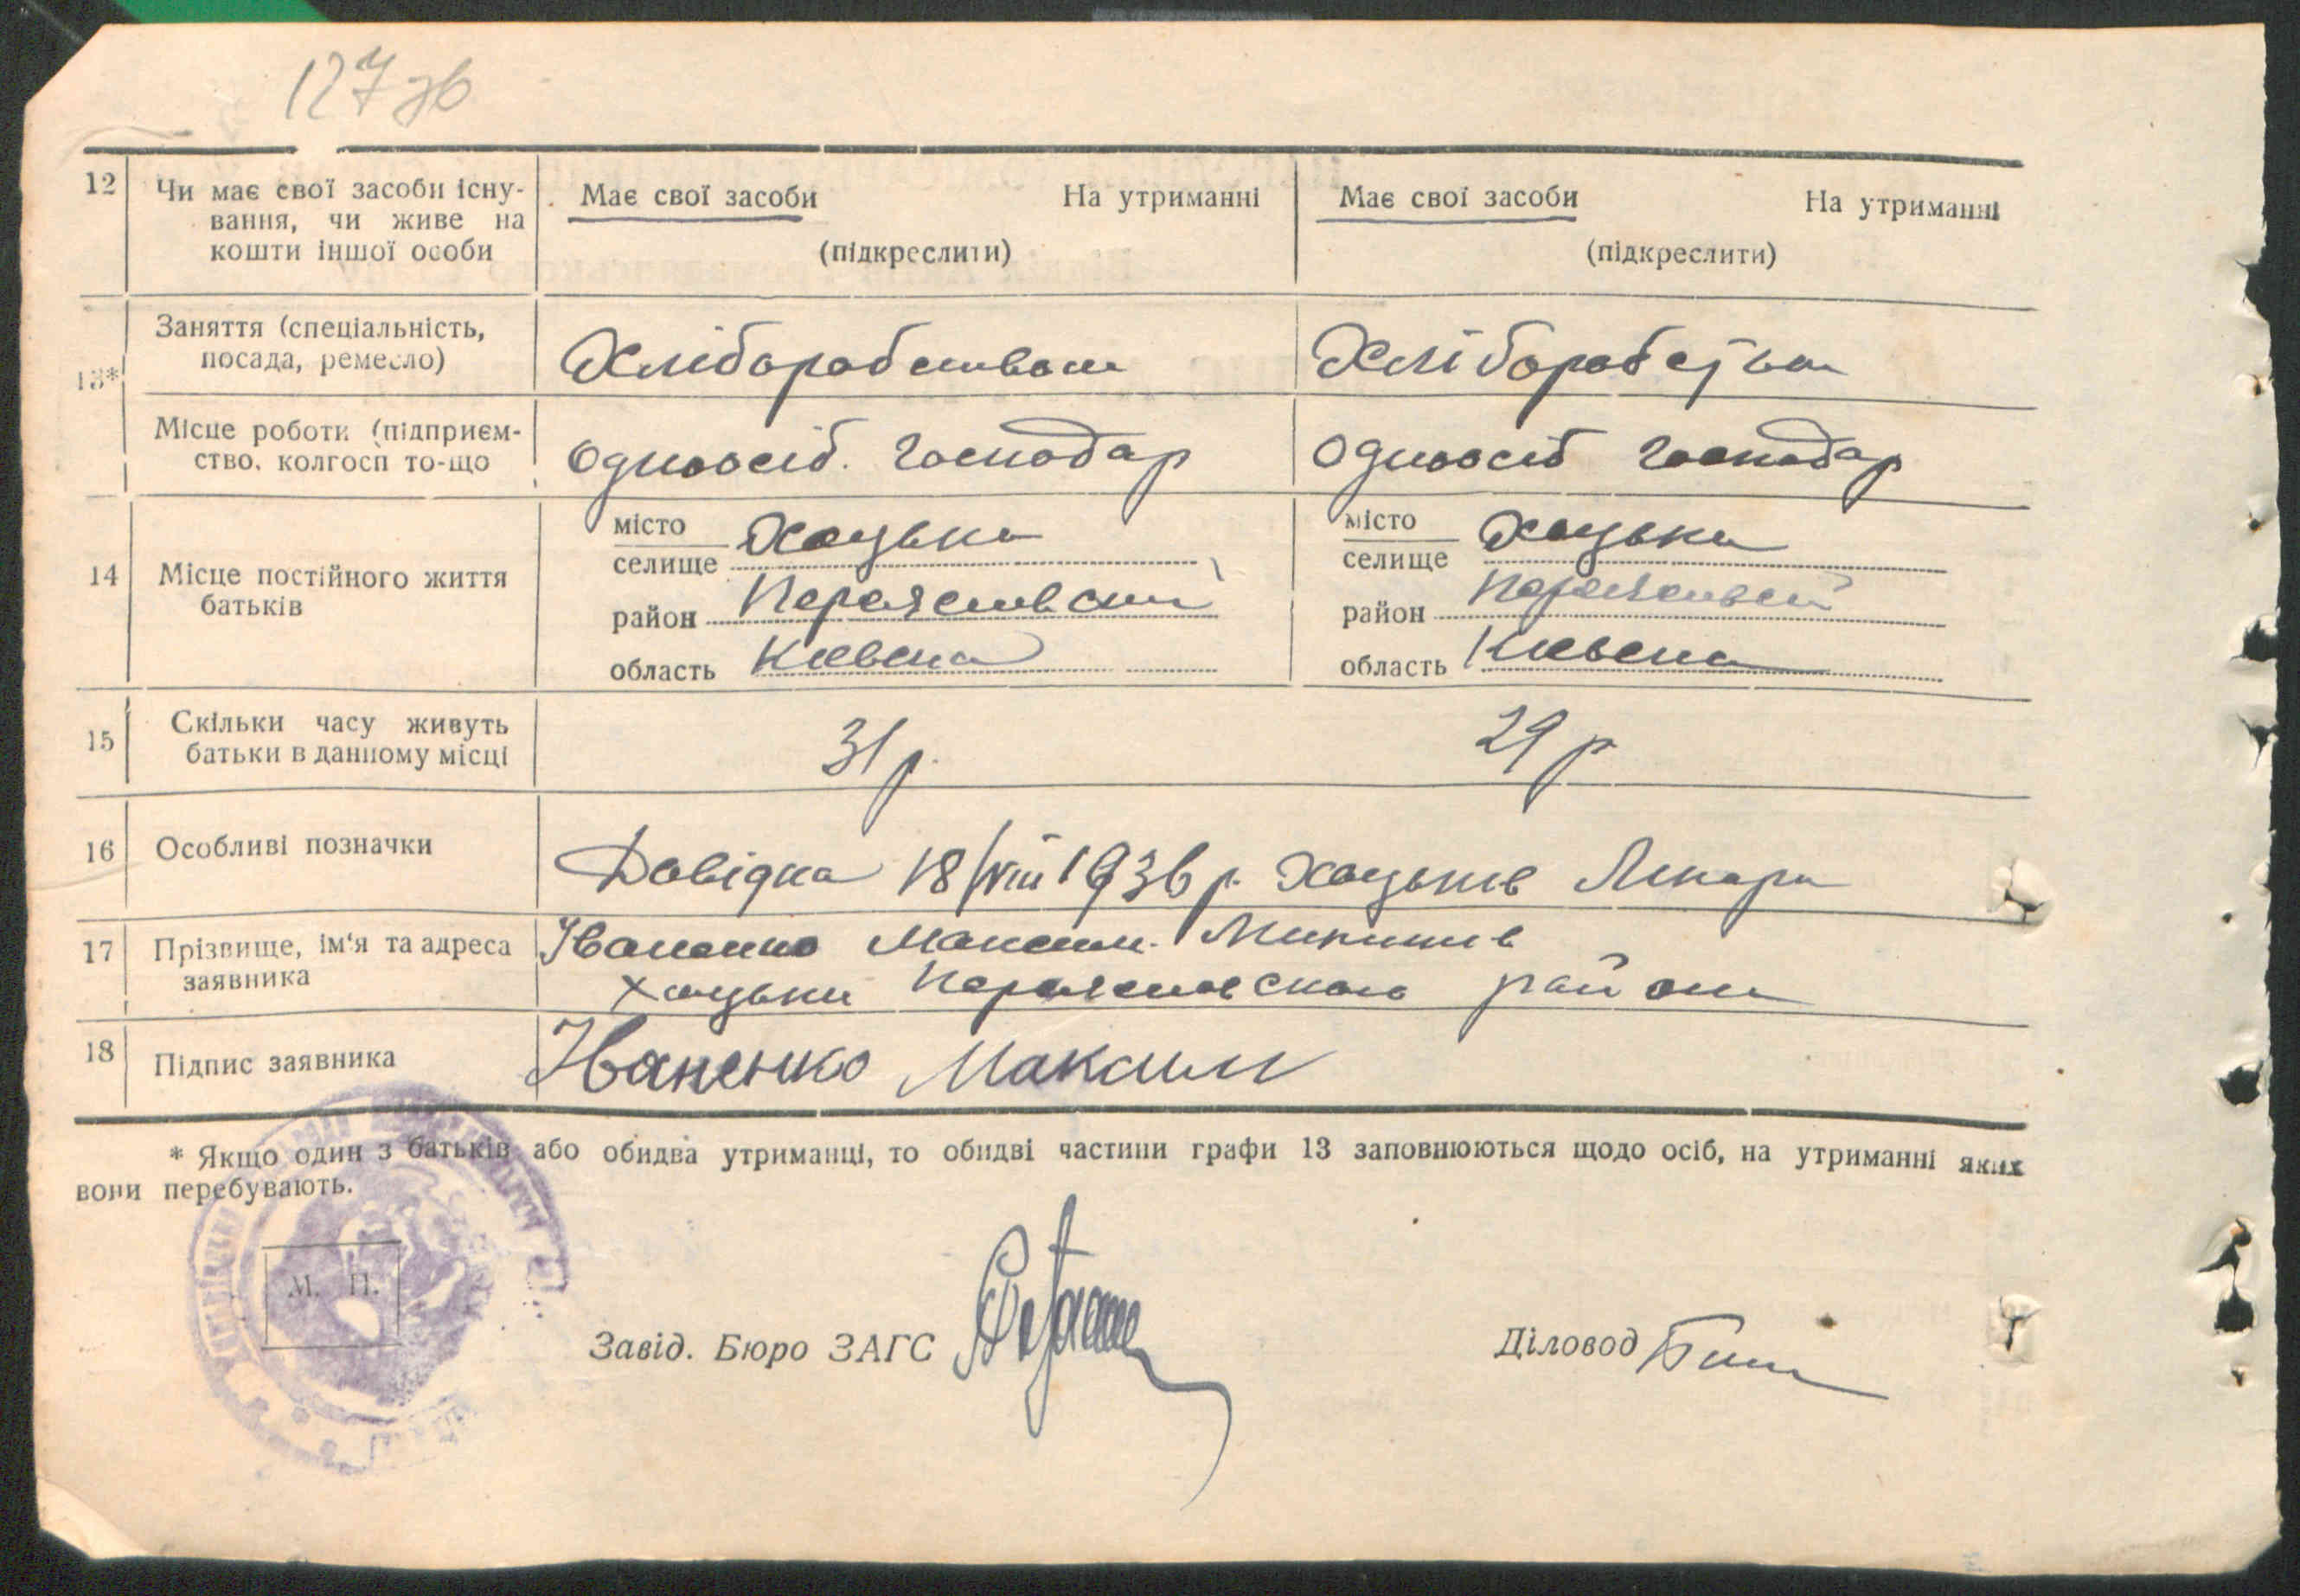 127 зв
12 Чи має свої засоби існу- Має свої засоби На утриманні Має свої засоби На утриманні
вання, чи живе на
кошти іншої особи (підкреслити) (підкреслити)
Заняття (спеціальність,
13* посада, ремесло) Хліборобством Хліборобством
Місце роботи (підприєм-
ство, колгосп то-що одноосіб. господар одноосіб господар
місто Хоцьки місто Хоцьки
селище селище
14 Місце постійного життя
батьків район Переяславський район Переяславський
область Київська область Київська
15 Скільки часу живуть 31 р. 29 р
батьки в данному місці
16 Особливі позначки Довідка 18/VIII 1936 р. Хоцьків Лікаря
17 Прізвище, ім'я та адреса Іваненко Максим
заявника Хоцьки Переяславского району
18 Підпис заявника Іваненко Максим
* Якщо один з батьків або обидва утриманці, то обидві частини графи 13 заповнюються щодо осіб, на утриманні яких
вони перебувають.
М. П.
Завід. Бюро ЗАГС Діловод